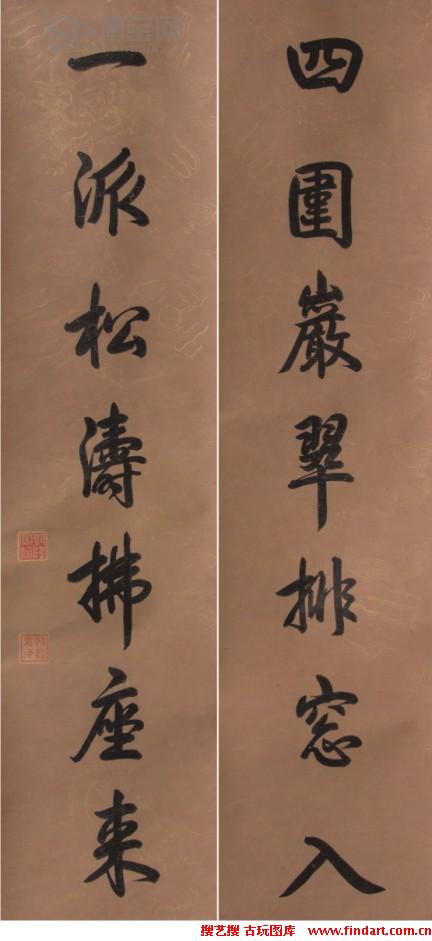 四圍巖翠排窓入
一派松濤拂座来
搜艺搜 古玩图库 www.findart.com.cn